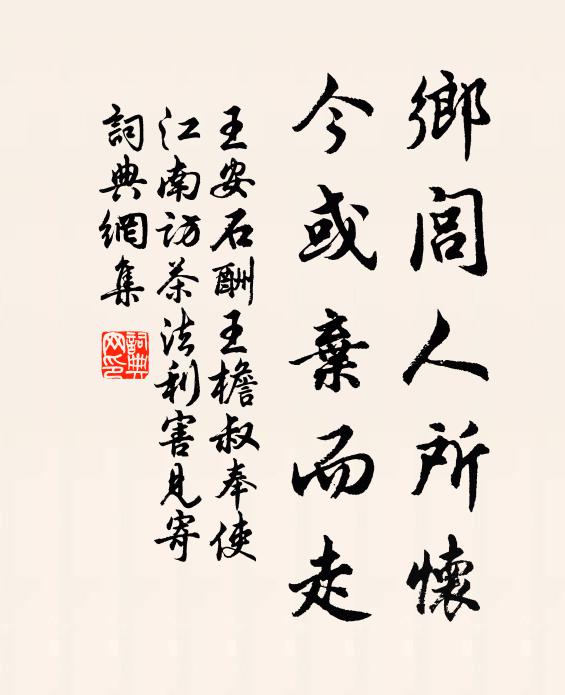 鄉閭人所懷
今或棄而走
王安石酬王檐叔奉使
江南訪茶法利害見寄
詞典網集
詞典网印